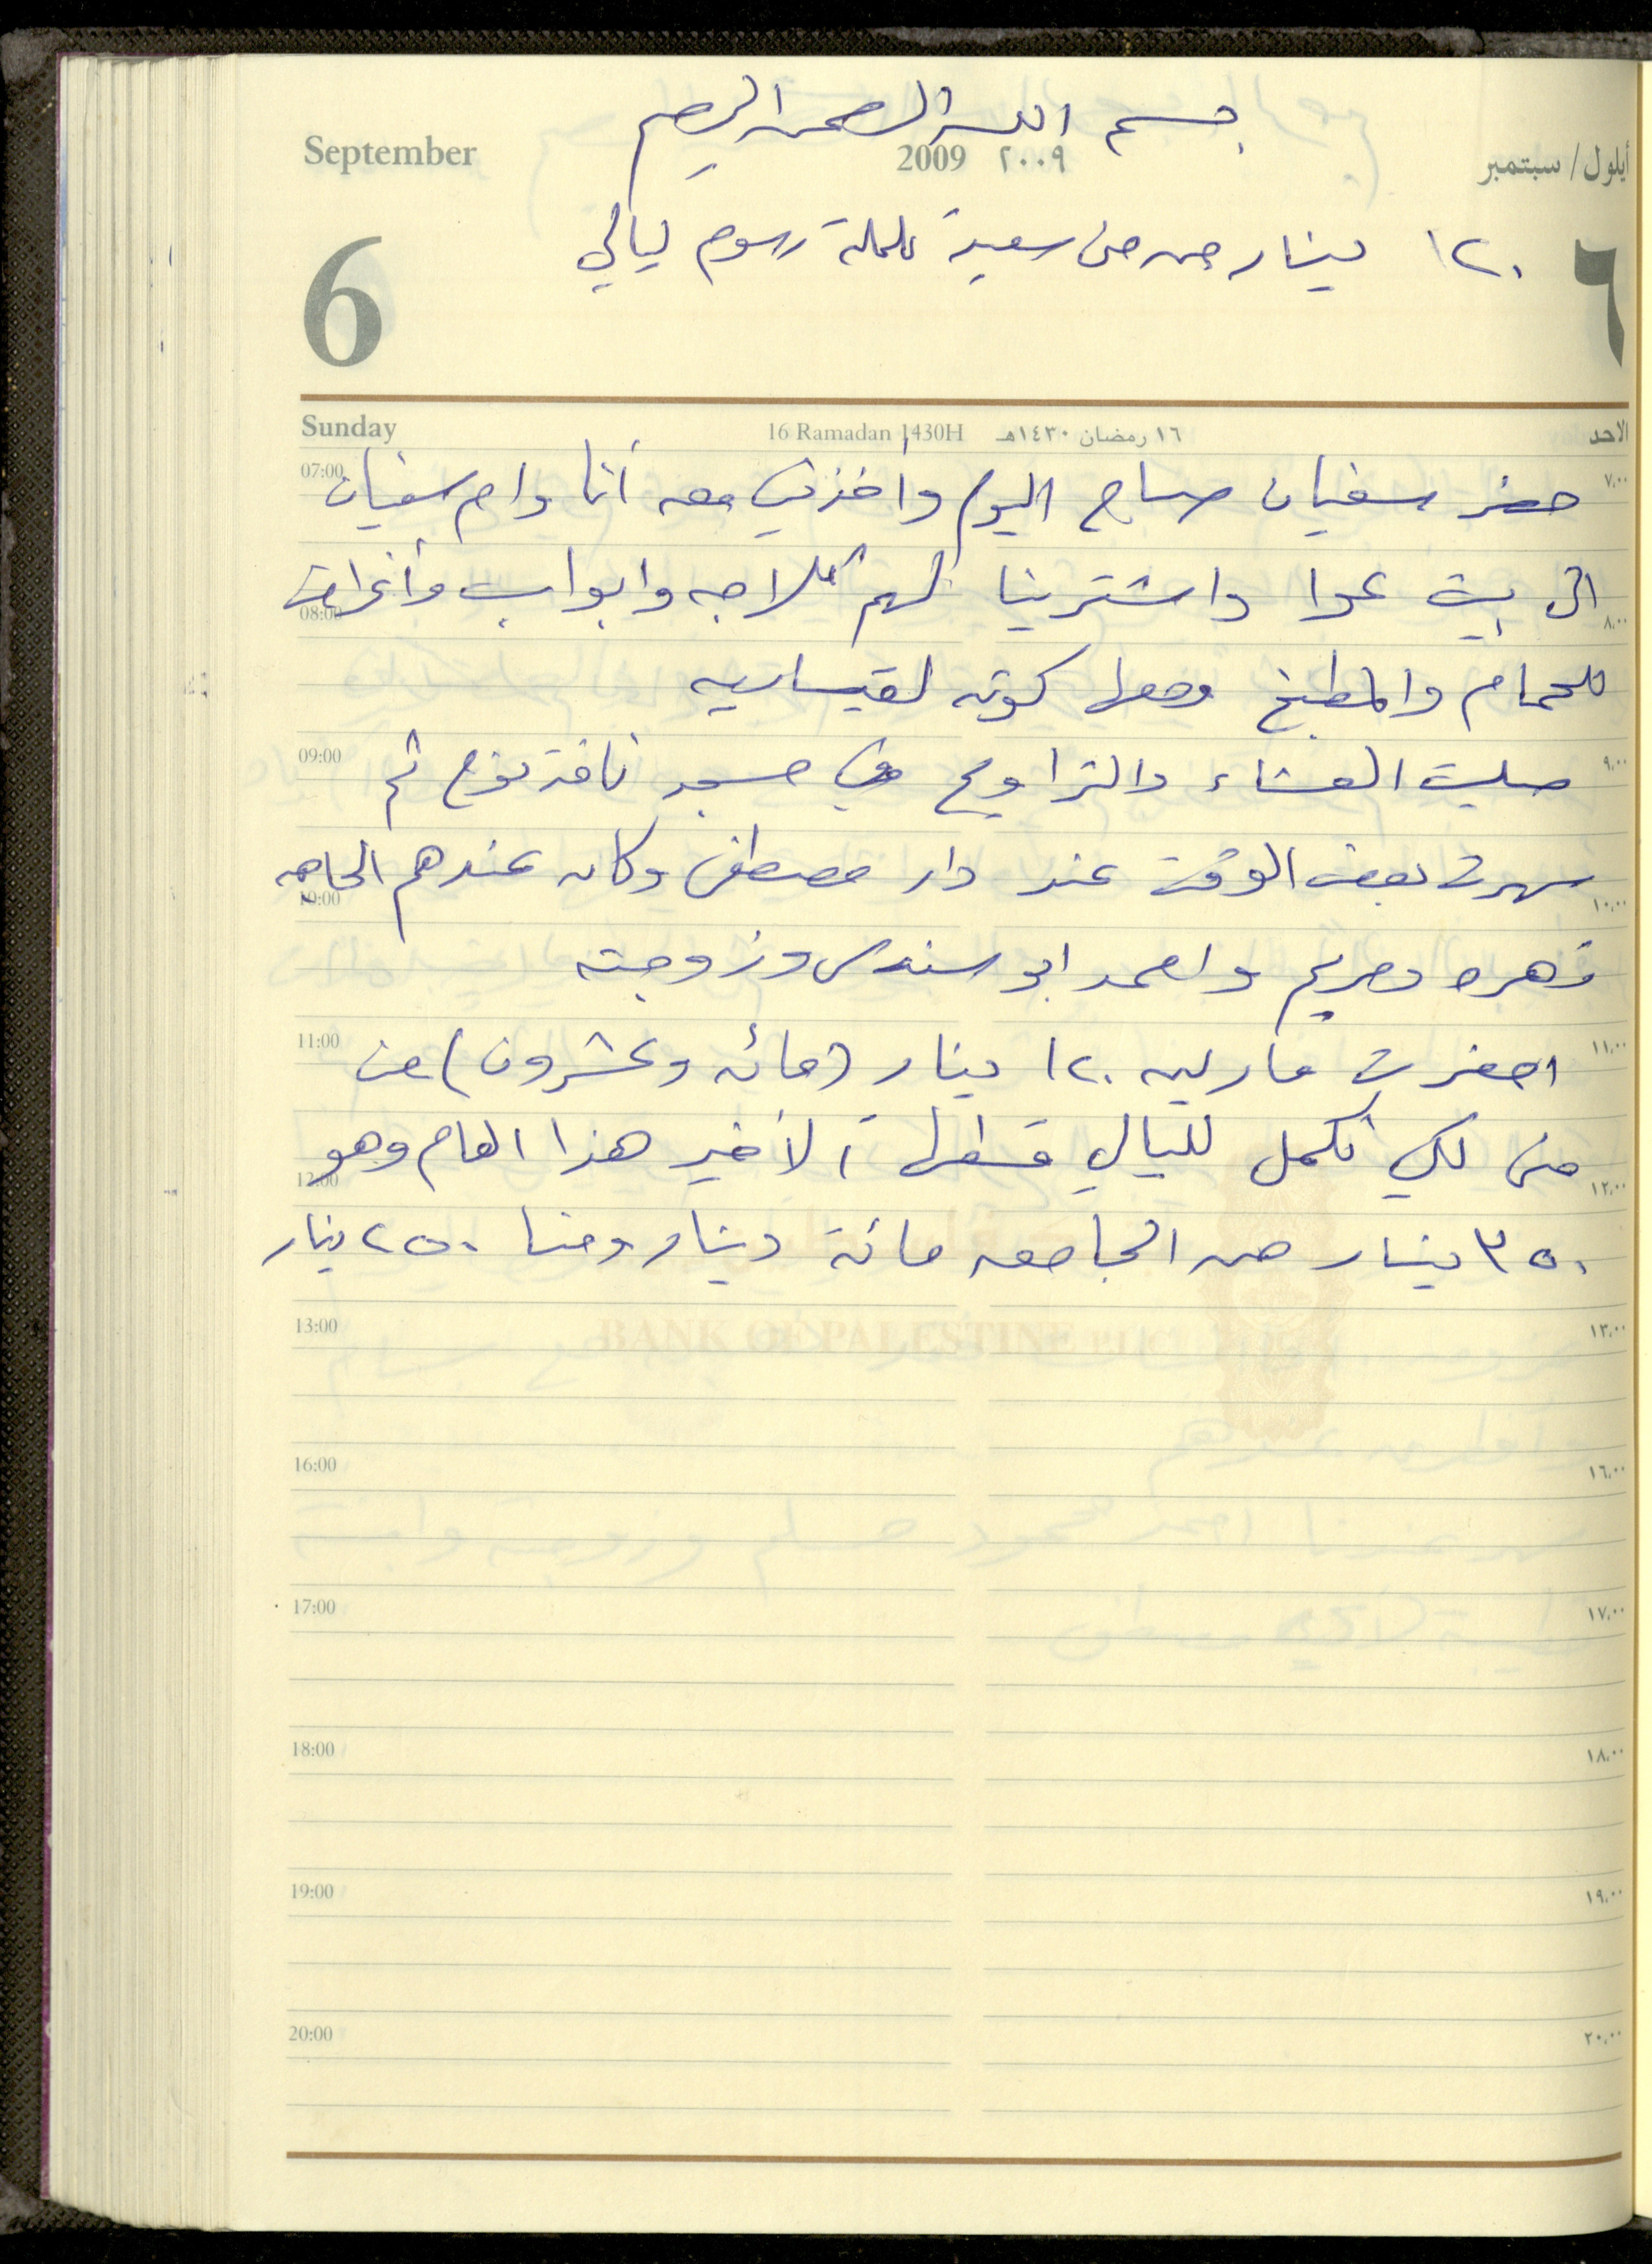 بسم الله الرحمن الرحيم
September 2009 ٢٠٠٩ أيلول / سبتمبر
6 ٦
١٢٠ دينار من منى سعيد تكملة رسوم ليالي
Sunday 16 Ramadan 1430H ١٦ رمضان ١٤٣٠هـ الاحد
07:00 ٧،٠٠
حضر سفيان صباح اليوم وأخذني معه أنا وام سفيان
الى بيت عوا واشترينا لهم ثلاجه وابواب وأغراض
08:00 ٨،٠٠
للحمام والمطبخ وحملها كونه لقيساريه
09:00 ٩،٠٠
صليت العشاء والتراويح في مسجد نافذ نوح ثم
سهرت بعض الوقت عند دار مصطفى وكان عندهم الحاجه
10:00 ١٠،٠٠
زهره ومريم واحمد ابو سندس وزوجته
11:00 ١١،٠٠
احضرت ماريه ١٢٠ دينار (مائه وعشرون) من
منى لكي نكمل لليالي قسطها الأخير هذا العام وهو
12:00 ١٢،٠٠
٣٥٠ دينار من الجامعه مائة دينار ومنا ٢٥٠ دينار
13:00 ١٣،٠٠
BANK OF PALESTINE PLC
16:00 ١٦،٠٠
17:00 ١٧،٠٠
18:00 ١٨،٠٠
19:00 ١٩،٠٠
20:00 ٢٠،٠٠